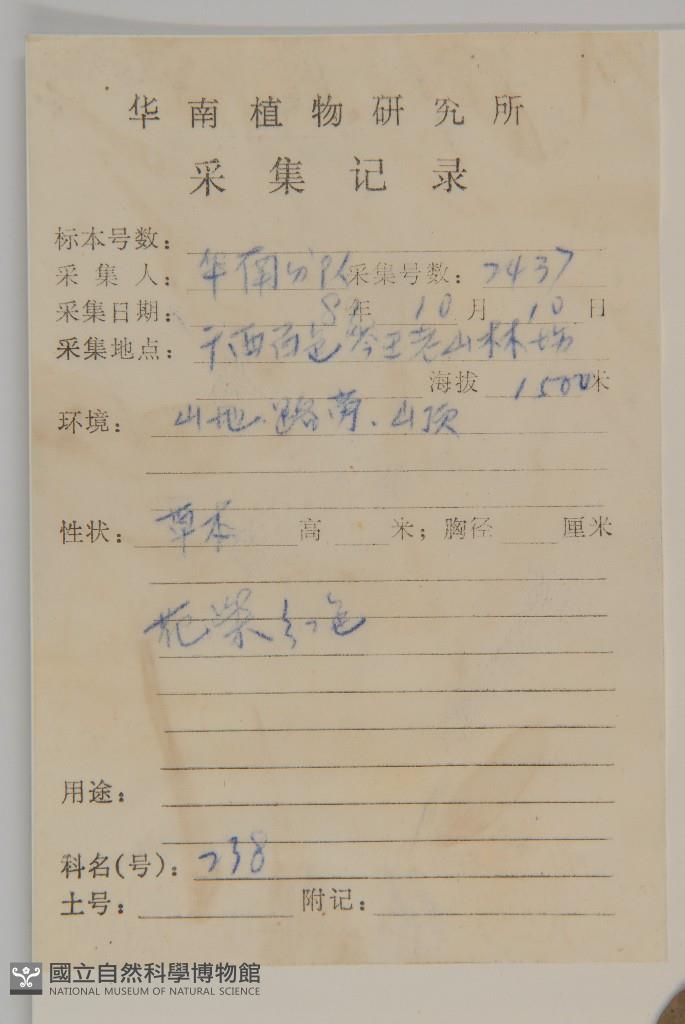 华南植物研究所
采集记录
标本号数：
采集人： 华南分队 采集号数： 2437
采集日期： 8 年 10 月 10 日
采集地点： 广西百色岑王老山林场
海拔 1500 米
环境： 山地.路旁.山顶
性状： 草本 高 米；胸径 厘米
花紫红色
用途：
科名(号)： 238
土号： 附记：
國立自然科學博物館
NATIONAL MUSEUM OF NATURAL SCIENCE